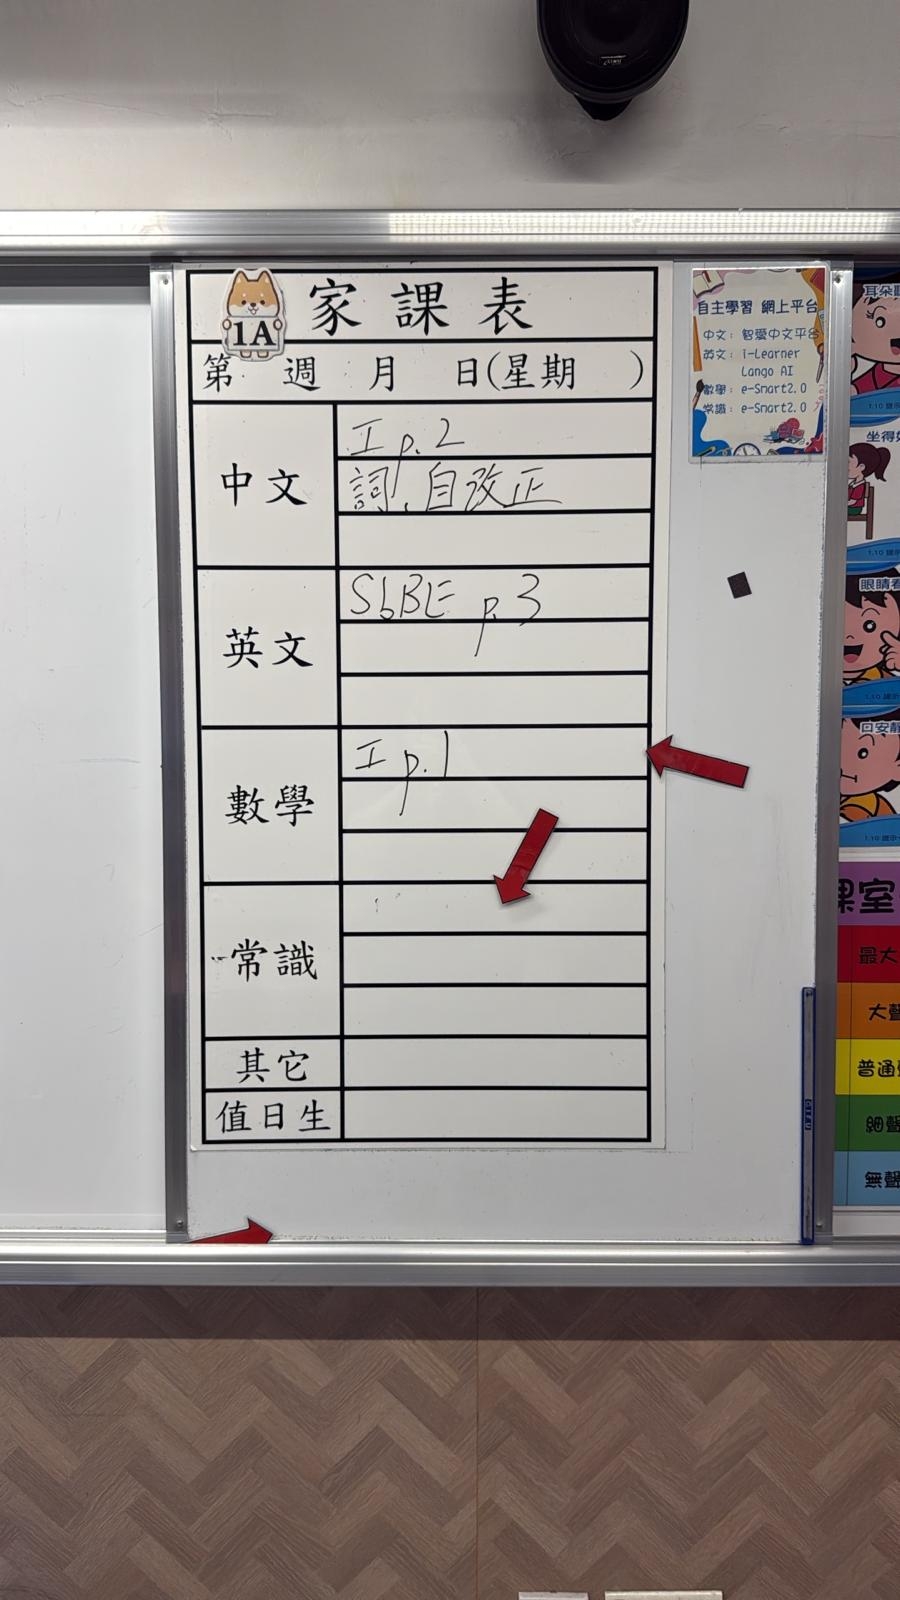 1A
家課表
第 週 月 日(星期 )
中文
工 p.2
詞, 自改正
英文
SbBE p.3
數學
工 p.1
常識
其它
值日生
自主學習 網上平台
中文: 智愛中文平台
英文: i-Learner
Lango AI
數學: e-Smart2.0
常識: e-Smart2.0
坐得
1.10 提示
眼睛
1.10 提示
1.10 提示
課室
最大
大聲
普通
細聲
無聲